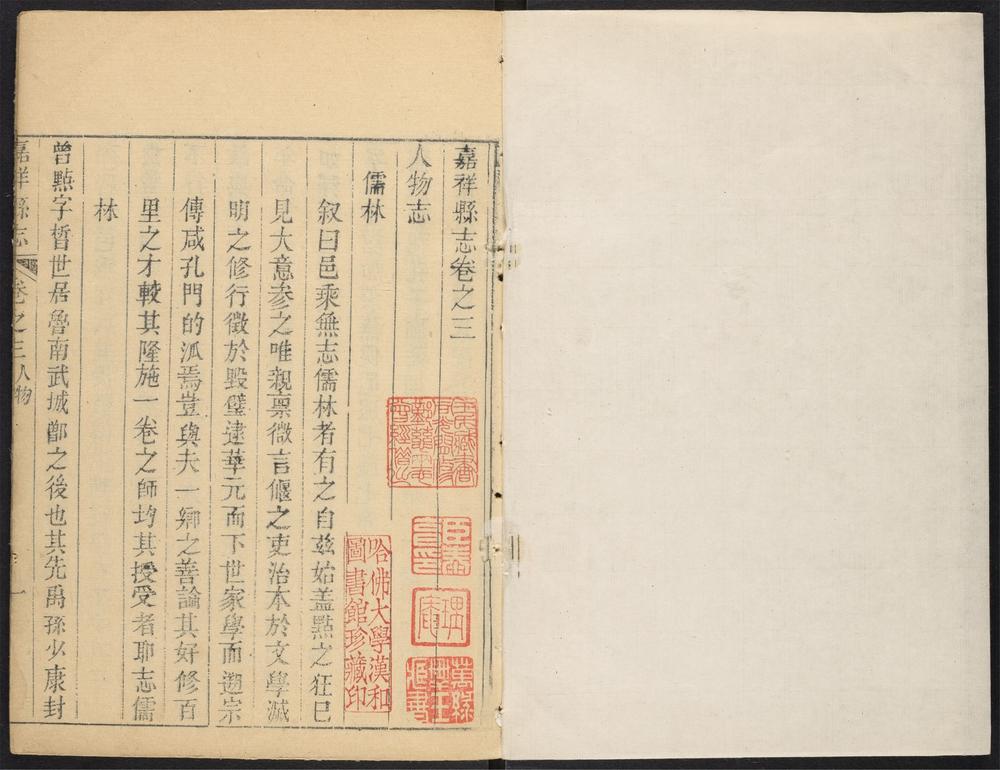 嘉祥縣志卷之三
人物志
儒林
叙曰邑乘無志儒林者有之自茲始盖㸃之狂已
見大意參之唯親禀微言偃之吏治本於文學滅
明之修行徵於毀璧逮華元而下世家學而遡宗
傳咸孔門的泒焉豈與夫一鄉之善論其好修百
里之才較其隆施一卷之師均其授受者耶志儒
林
曾㸃字晳世居魯南武城鄫之後也其先禹孫少康封
嘉祥縣志
卷之三人物
一
哈佛大學漢和
圖書館珍藏印